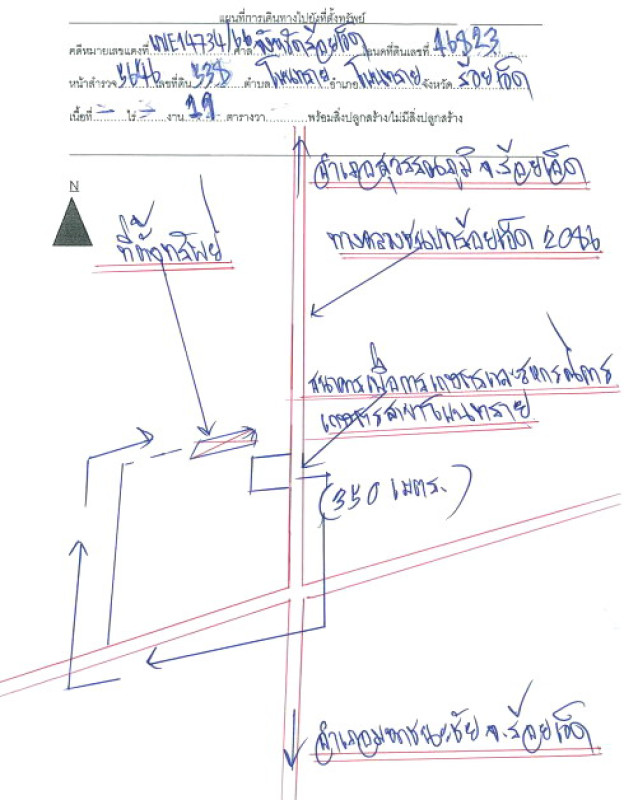 แผนที่การเดินทางไปยังที่ตั้งทรัพย์
คดีหมายเลขแดงที่ ผบE14734/66 ศาล จังหวัดร้อยเอ็ด โฉนดที่ดินเลขที่ 16823
หน้าสำรวจ 3646 เลขที่ดิน 338 ตำบล โพนทราย อำเภอ โพนทราย จังหวัด ร้อยเอ็ด
เนื้อที่ - ไร่ - งาน 19 ตารางวา พร้อมสิ่งปลูกสร้าง/ไม่มีสิ่งปลูกสร้าง
อำเภอสุวรรณภูมิ จ.ร้อยเอ็ด
N
ที่ตั้งทรัพย์
ทางหลวงชนบทร้อยเอ็ด 2086
ธนาคารเพื่อการเกษตรและสหกรณ์การ
เกษตรสาขาโพนทราย
(350 เมตร.)
อำเภอมหาชนะชัย จ.ร้อยเอ็ด